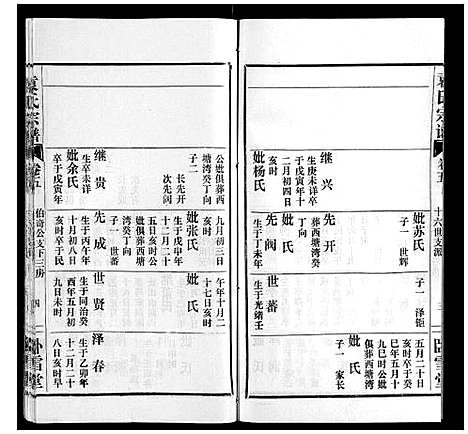 袁氏宗譜
卷五
十六世支派
三
卧雪堂
继兴
生庚未详卒
于戊寅年十
二月初四日
妣杨氏
公妣俱葬西
塘湾癸丁向
长先开
次先阋
继贵
生卒未详
妣余氏
卒于戊寅年
先开
葬西塘湾癸
丁向
子一 世蕃
先阋
生于丁未年
九月初三日
亥时
妣张氏
生于戊申年
十二月二十
五日亥时公
妣俱葬西塘
湾癸丁向
子一 世蕃
先成
生于丙午年
亥时卒于民
妣苏氏
子一 世辉
世蕃
生于光绪壬
午年十月二
十七日亥时
妣 氏
世贤
生于同治癸
酉年五月初
九日未时
子一 泽钜
妣 氏
子一 家长
泽春
生于乙卯年
十二月二十
八日亥时早
五月二十日
亥时卒于丁
巳年五月十
九巳时公妣
俱葬西塘湾
袁氏宗譜
卷五
伯奇公支下三房
四
卧雪堂